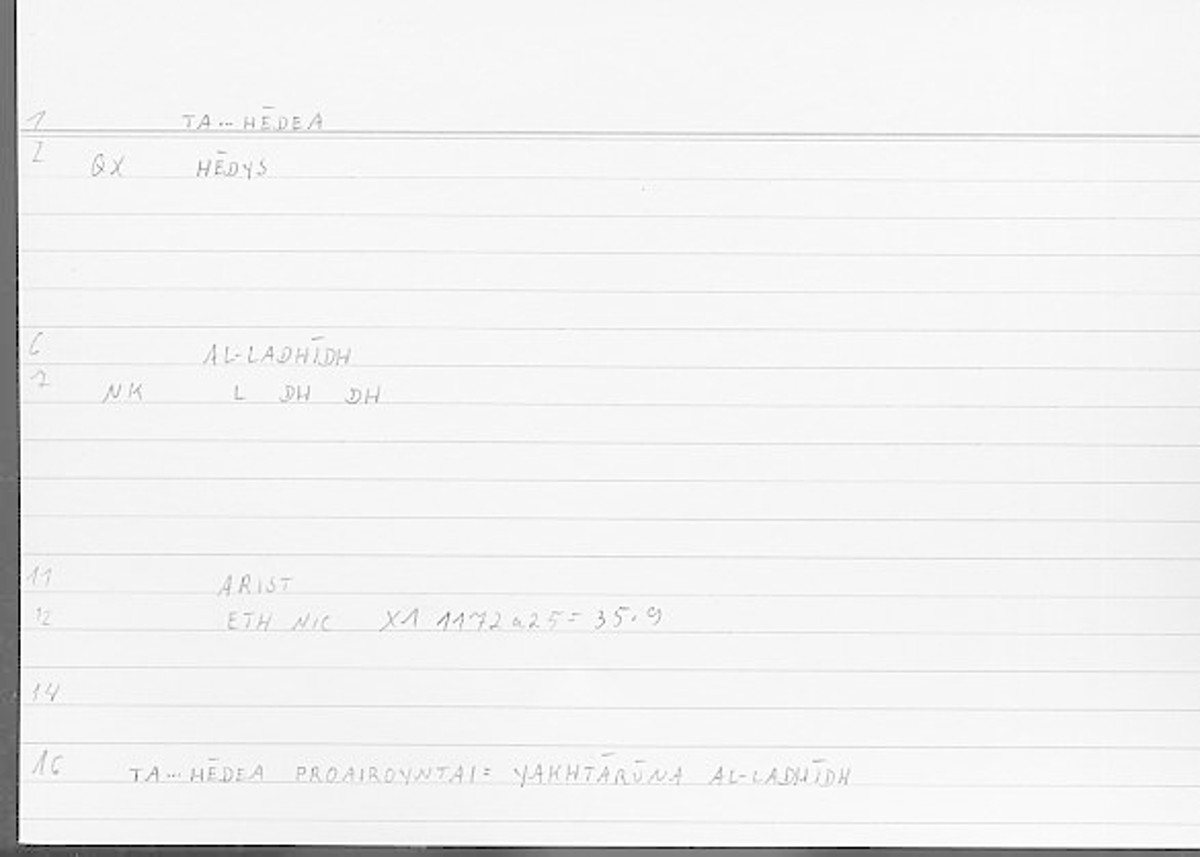 1 TA... HĒDEA
2 QX HĒDYS
6 AL-LADHĪDH
7 NK L DH DH
11 ARIST
12 ETH NIC X1 1172a25 = 35.9
14
16 TA... HĒDEA PROAIROYNTAI = YAKHTĀRŪNA AL-LADHĪDH